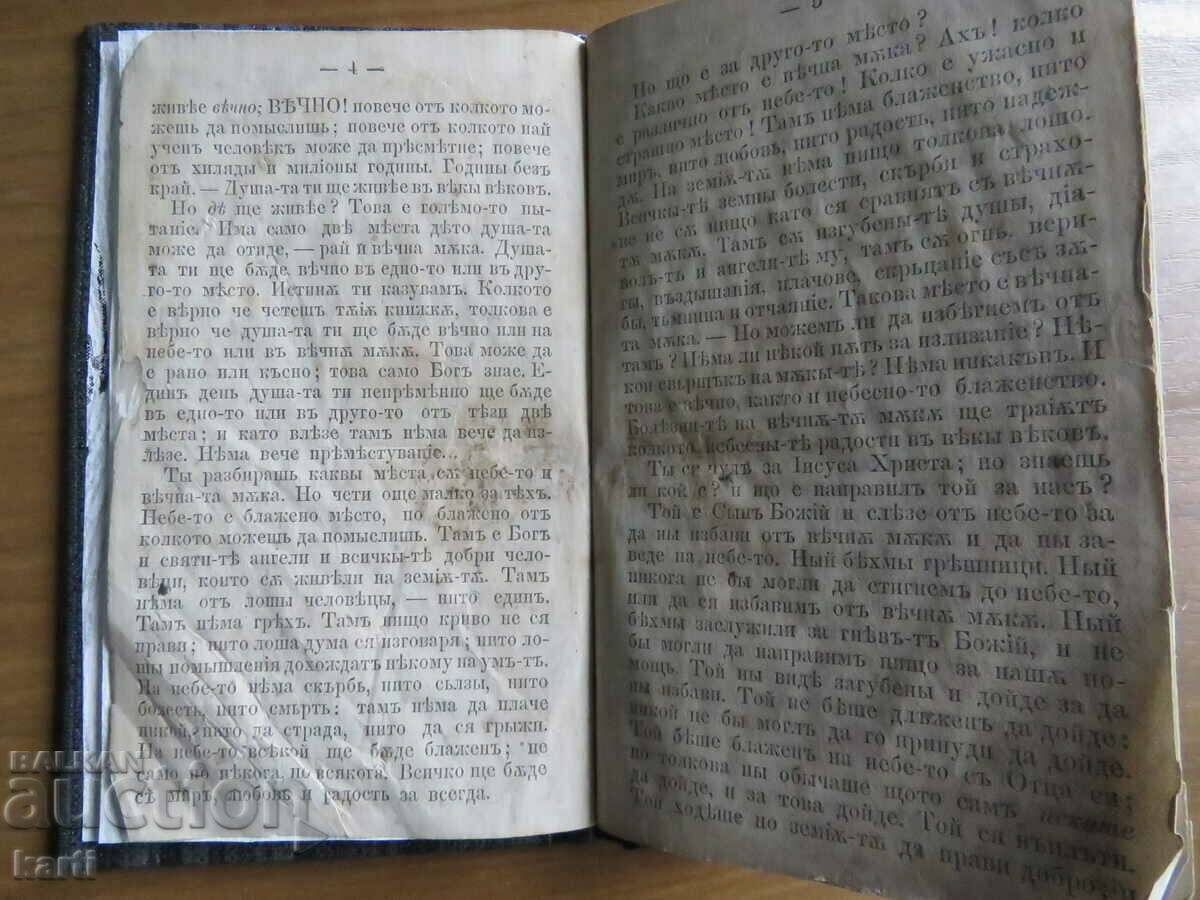 — 4 —
живѣе вѣчно; ВѢЧНО! повече отъ колкото мо-
жешь да помыслишь; повече отъ колкото най
ученъ человѣкъ може да прѣсмѣтне; повече
отъ хиляды и милионы годины. Годины безъ
край. — Душа-та ти ще живѣе въ вѣкы вѣковъ.
Но дѣ ще живѣе? Това е голѣмо-то пы-
таніе. Има само двѣ мѣста дѣто душа-та
може да отиде, — рай и вѣчна мѫка. Душа-
та ти ще бѫде вѣчно въ едно-то или въ дру-
го-то мѣсто. Истинѫ ти казувамъ. Колкото
е вѣрно че четешь тѫіѫ книжкѫ, толкова е
вѣрно че душа-та ти ще бѫде вѣчно или на
небе-то или въ вѣчнѫ мѫкѫ. Това може да
е рано или късно; това само Богъ знае. Е-
динъ день душа-та ти непрѣмѣнно ще бѫде
въ едно-то или въ друго-то отъ тѣзи двѣ
мѣста; и като влѣзе тамъ нѣма вече да из-
лѣзе. Нѣма вече прѣмѣстуваніе...
Ты разбирашь каквы мѣста сѫ небе-то и
вѣчна-та мѫка. Но чети още малко за тѣхъ.
Небе-то е блажено мѣсто, по блажено отъ
колкото можешь да помыслишь. Тамъ е Богъ
и святи-тѣ ангели и всичкы-тѣ добри чело-
вѣци, които сѫ живѣли на земіѭ-тѫ. Тамъ
нѣма отъ лошы человѣцы, — нито единъ.
Тамъ нѣма грѣхъ. Тамъ нищо криво не ся
прави; нито лоша дума ся изговаря; нито ло-
шы помышленія дохождатъ нѣкому на умъ-тъ.
На небе-то нѣма скърбь, нито сълзы, нито
болесть, нито смърть; тамъ нѣма да плаче
никой, нито да страда, нито да ся грыжи.
На небе-то всѣкой ще бѫде блаженъ; не
само по нѣкога, но всякога. Всичко ще бѫде
съ миръ, любовь и радость за всегда.
— 5
Но що е за друго-то мѣсто?
Какво мѣсто е вѣчна мѫка? Ахъ! колко
е различно отъ небе-то! Колко е ужасно и
страшно мѣсто! Тамъ нѣма блаженство, нито
миръ, нито любовь, нито радость, нито надеж-
дѫ. На земіѭ-тѫ нѣма нищо толкова лошо.
Всичкы-тѣ земны болести, скърби и страхо-
не сѫ нищо като ся сравнятъ съ вѣчнѫ-
тѫ мѫкѫ. Тамъ сѫ изгубены-тѣ душы, діа-
волъ-тъ и ангели-тѣ му; тамъ сѫ огнь, вери-
гы, въздышанія, плачове, скръцаніе съсъ зѫ-
бы, тьмнина и отчаяніе. Такова мѣсто е вѣчна-
та мѫка. — Но можемъ ли да избѣгнемъ отъ
тамъ? Нѣма ли нѣкой пѫть за изливаніе? Нѣ-
кои свършъкъ на мѫкы-тѣ? Нѣма никакъвъ. И
това е вѣчно, както и небесно-то блаженство.
Болѣзни-тѣ на вѣчнѫ-тѫ мѫкѫ ще траіѭтъ
колкото небесны-тѣ радости въ вѣкы вѣковъ.
Ты си чулъ за Іисуса Христа; но знаешь
ли кой е? и що е направилъ той за насъ?
Той е Сынъ Божій и слѣзе отъ небе-то за
да ны избави отъ вѣчнѫ мѫкѫ и да ны за-
веде на небе-то. Ный бѣхмы грѣшници. Ный
никога не бы могли да стигнемъ до небе-то,
или да ся избавимъ отъ вѣчнѫ мѫкѫ. Ный
бѣхмы заслужили за гнѣвъ-тъ Божій, и не
бы могли да направимъ нищо за нашѫ по-
мощь. Той ны видѣ загубены и дойде за да
ны избави. Той не бѣше длъженъ да дойде:
никой не бы моглъ да го принуди да дойде.
Той бѣше блаженъ на небе-то съ Отца си;
но толкова ны обычаше щото самъ искаше
да дойде, и за това дойде. Той ся въплъти.
Той ходѣше по земіѭ-тѫ да прави доброзы
BALKAN
auction
karti